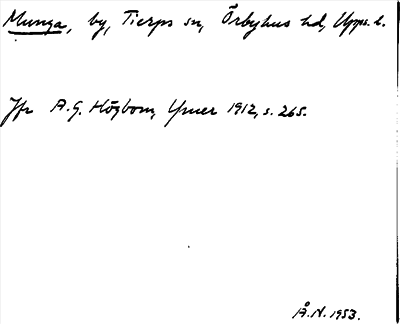 Munga, by, Tierps sn, Örbyhus hd, Upps. l.
Jfr A.G. Högbom, Ymer 1912, s. 265.
Å.N. 1953.